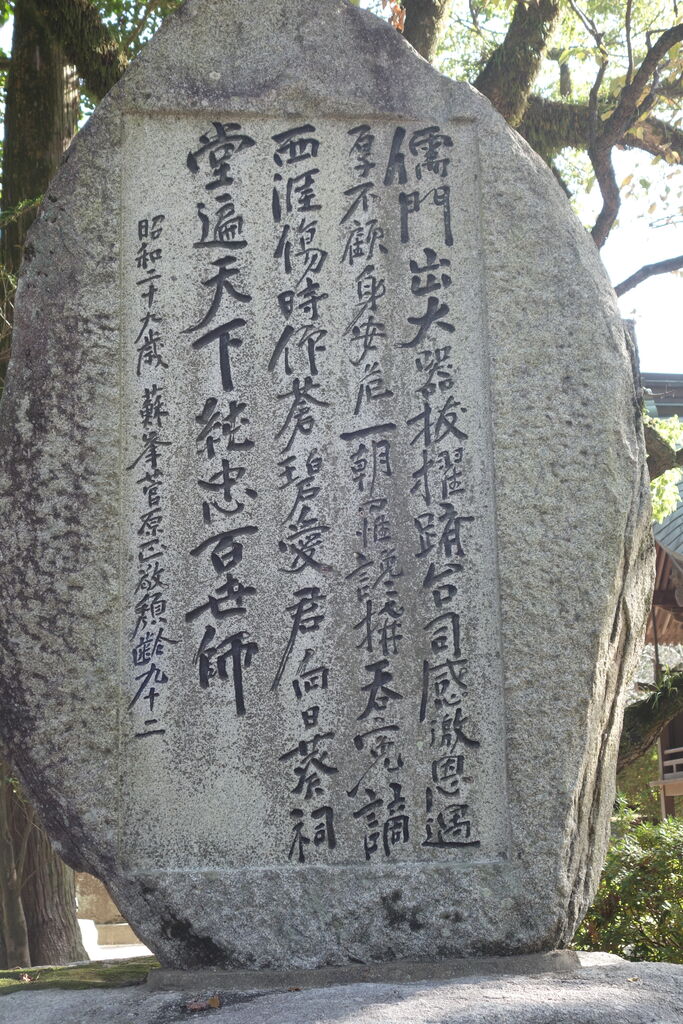 儒門出大器拔擢躋台司感激恩遇
厚不顧身安危一朝罹讒搆呑寃謫
西涯傷時仰蒼碧愛君向日葵祠
堂遍天下純忠百世師
昭和二十九歳 蘇峯菅原正敬頽齢九十二